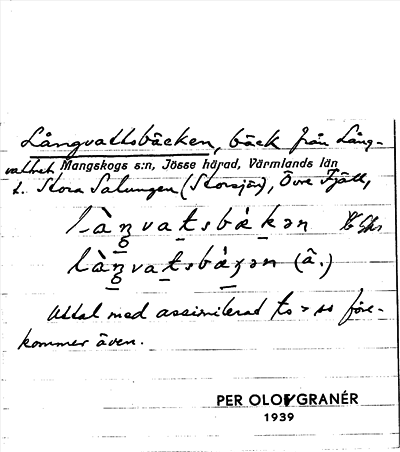 Långvattsbäcken, bäck från Lång-
vattnet Mangskogs s:n, Jösse härad, Värmlands län
t. Stora Salungen (Storsjön), Övre Fjäll,
làŋvatsbækən
làŋvatsbæ̀ʒən (â.)
Uttal med assimilerad ts > ss före-
kommer även.
PER OLOF GRANÉR
1939